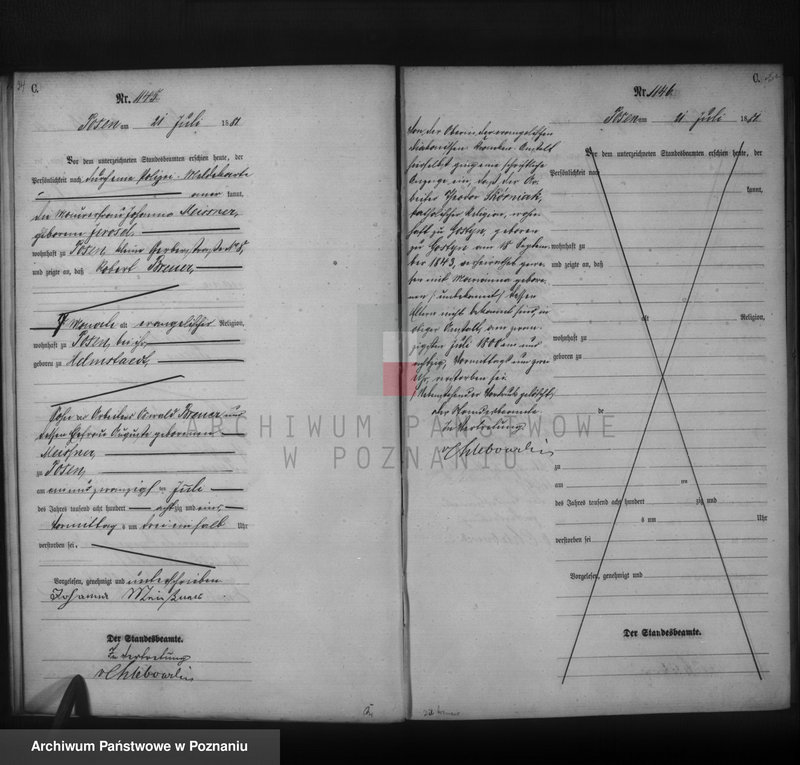 C.
Nr. 1145
Posen am 21 Juli 1881
Vor dem unterzeichneten Standesbeamten erschien heute, der
Persönlichkeit nach durch eine Polizei-Meldekarte
aner kannt,
die Maurerfrau Johanna Meissner,
geborene
wohnhaft zu Posen, kleine Gerberstrasse
und zeigte an, daß Robert Brener,
7 Monate alt evangelischer Religion,
wohnhaft zu Posen, bei ihr,
geboren zu
Sohn des Arbeiters Oswald Brener und
dessen Ehefrau Auguste geborenen
Meissner,
zu Posen,
am einundzwanzigsten Juli
des Jahres tausend acht hundert achtzig und eins,
Vormittags um drei ein halb Uhr
verstorben sei.
Vorgelesen, genehmigt und unterschrieben
Johanna Meißner
Der Standesbeamte.
In Vertretung
C.
Nr. 1146
Posen am 21 Juli 1881
Von der Oberin der evangelischen
Diakonissen Kranken Anstalt
hierselbst ging eine schriftliche
Anzeige ein, dass der Ar-
beiter Theodor Skorniak,
katholischer Religion, wohn-
haft zu Gostyn, geboren
zu Gostyn am 18 Septem-
ber 1843, verheirathet gewe-
sen mit Marianna gebore-
nen (unbekannt) dessen
Eltern nicht bekannt sind, in
obiger Anstalt, am zwan-
zigsten Juli 1800 ein und
achtzig, Vormittags um zwei
Uhr, verstorben sei
Nebenstehender Vordruck gelöscht,
der Standesbeamte
in Vertretung
Vor dem unterzeichneten Standesbeamten erschien heute, der
Persönlichkeit nach
kannt,
wohnhaft zu
und zeigte an, daß
alt Religion,
wohnhaft zu
geboren zu
de
zu
am ten
des Jahres tausend acht hundert zig und
s um Uhr
verstorben sei
Vorgelesen, genehmigt und
Der Standesbeamte.
ARCHIWUM PAŃSTWOWE
W POZNANIU
Archiwum Państwowe w Poznaniu